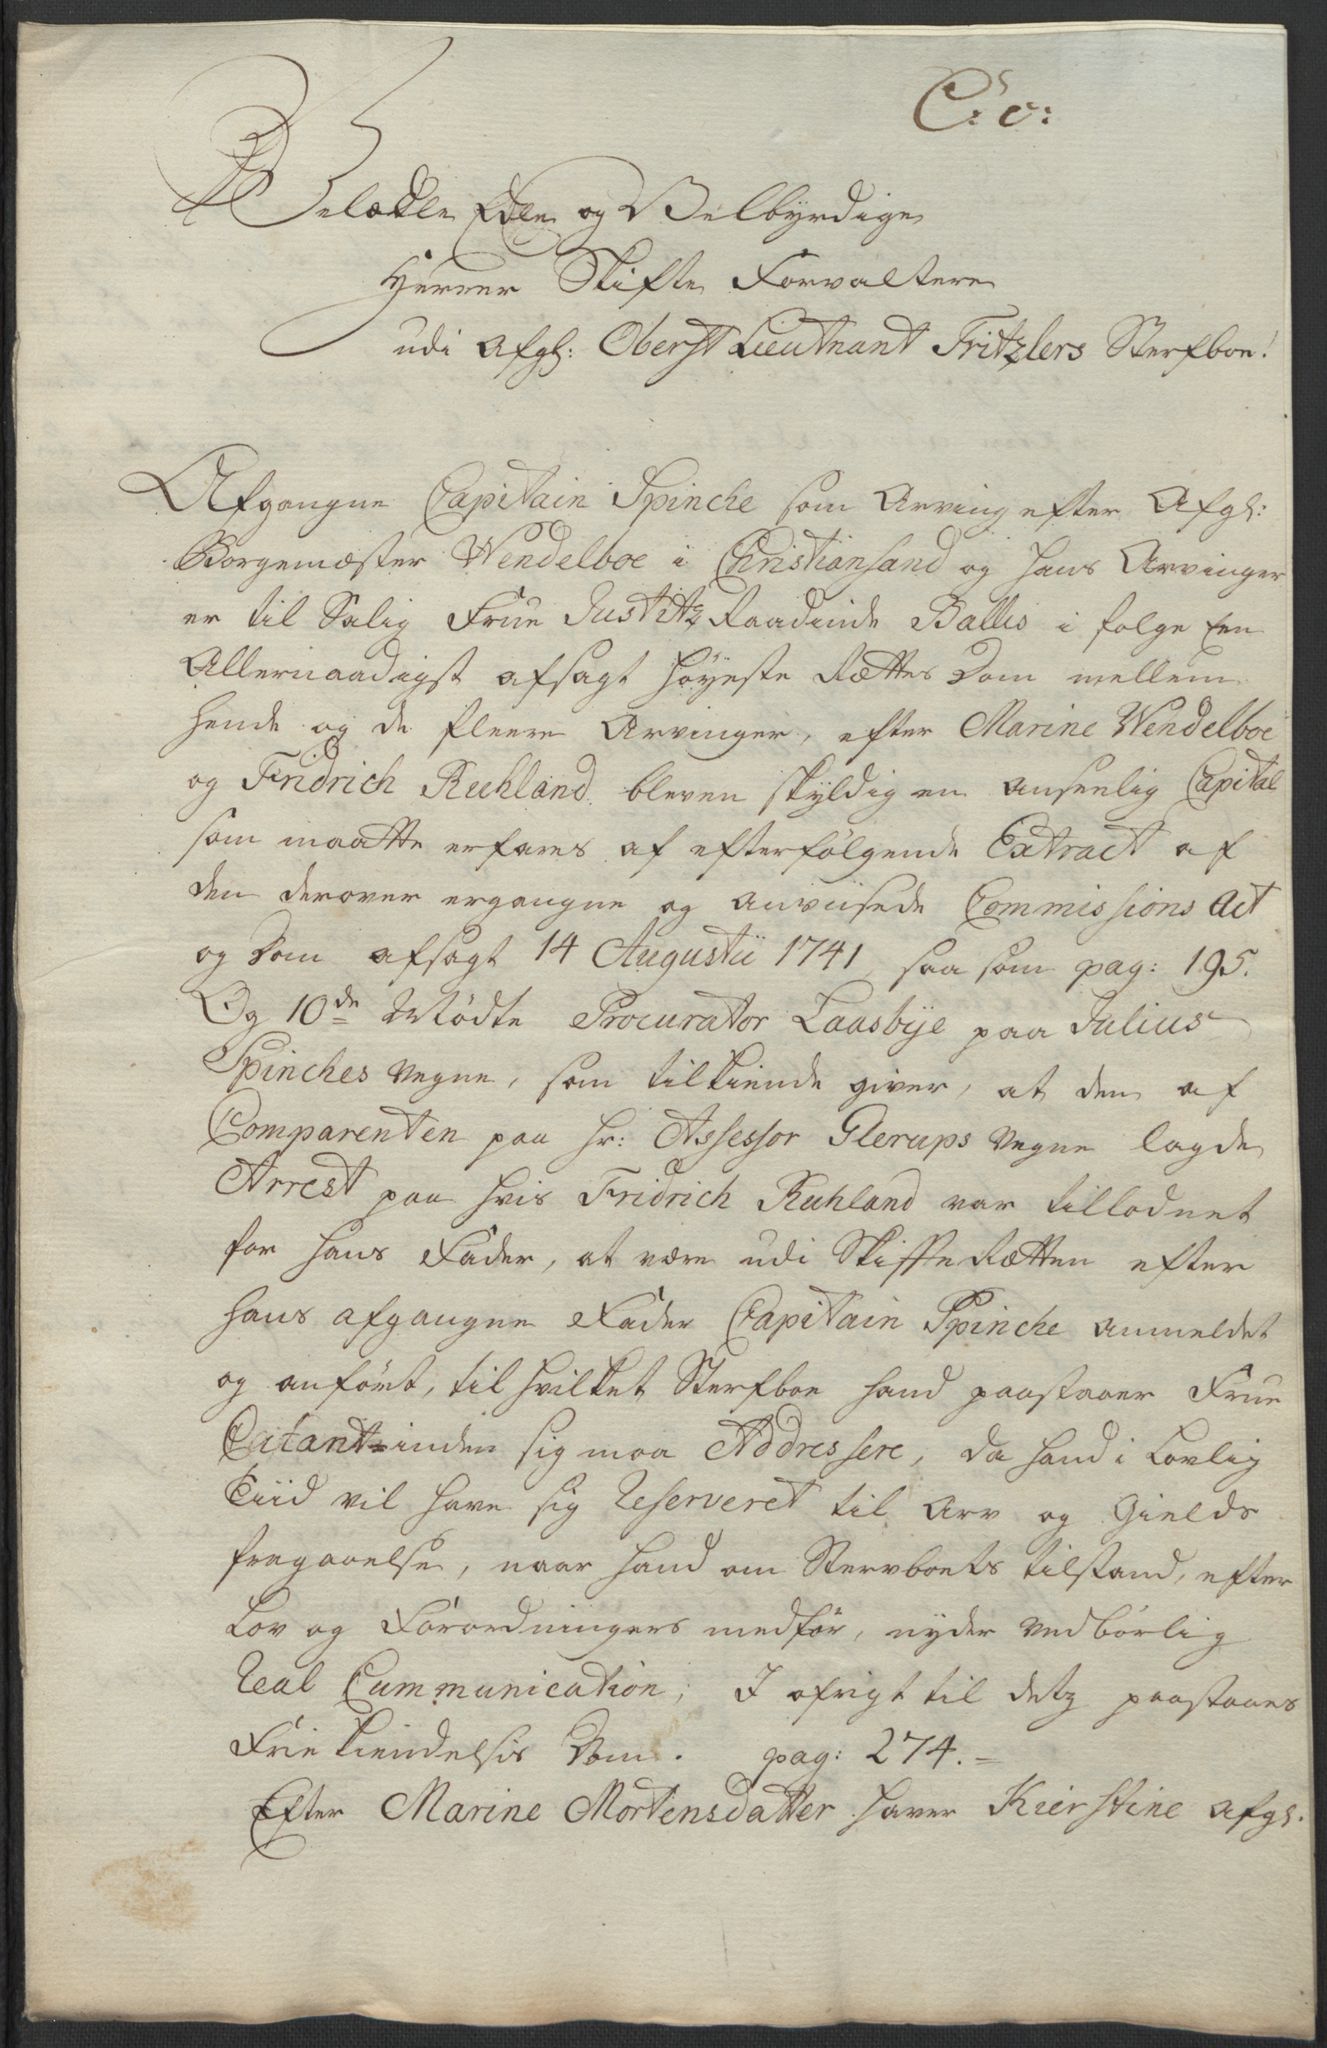 C: c:
Velædle Edle og Velbyrdige
Herrer Skifte Forvaltere
udi Afgl: Oberst Lieutnant Fritzlers Sterfboe!
Afgangne Capitain Spinche som Arving efter Afgl:
Borgemester Wendelboe i Christiansand og hans Arvinger
er til Salig Frue Justitz Raadinde Ballis i følge een
Allernaadigst afsagt Høyeste Rættes Dom mellem
hende og de fleere Arvinger, efter Marine Wendelboe
og Fridrich Ruhland bleven skyldig en anseelig Capital
som maatte erfares af efterfølgende Extract af
den derover ergangne og anviisede Commissions Act
og Dom afsagt 14 Augustii 1741 saa som pag: 195.
Og 10de Mødte Procurator Laasbye paa Julius
Spinches Vegne, som tilkiende giver, at den af
Comparenten paa Hr: Assessor Glerups Vegne lagde
Arrest paa hvis Fridrich Ruhland var tillodnet
for hans Fader, at være udi Skiffte Rætten efter
hans afgangne Fader Capitain Spinche anmeldet
og anført, til hvilket Sterfboe hand paastaaer Frue
Citant-inden sig maa Addressere, da hand i Lovlig
Tiid vil have sig Reserveret til Arv og Gields
fragaaelse, naar hand om Stervboets tilstand, efter
Lov og Forordningers medför, nyder Vedbörlig
Real Cummunication; I øfrigt til detz paastaaes
Frie kiendelsis Dom. pag: 274.-
Efter Marine Mortensdatter haver Kierstine Afgl.